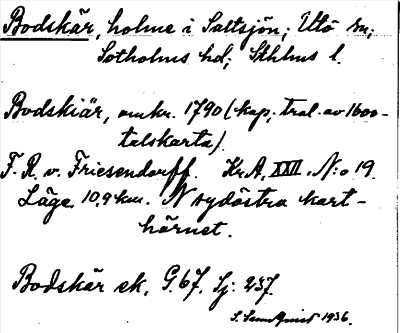 Bodskär, holme i Saltsjön; Utö sn;
Sotholms hd; Sthlms l.
Bodskiär, omkr. 1790 (kap; tral. av 1600-
talskarta).
F. R. v. Friesendorff. Kr.A, XXII. N:o 19.
Läge 10,9 km. N sydöstra kart-
hörnet.
Bodskär ek, G. 67. Lj: 237.
S. Sundquist 1936.